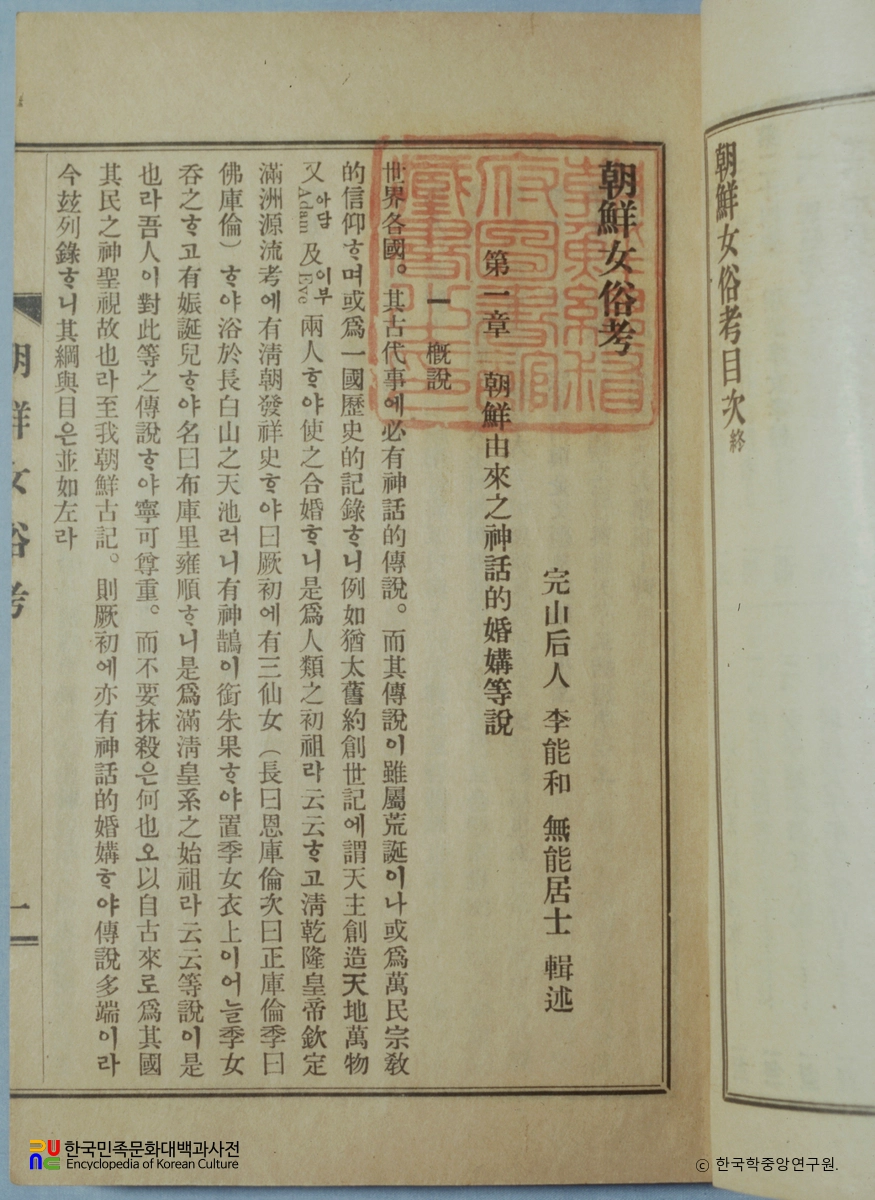 朝鮮女俗考目次 終
朝鮮女俗考
完山后人 李能和 無能居士 輯述
第一章 朝鮮由來之神話的婚媾等說
一 槪說
世界各國。其古代事에必有神話的傳說。而其傳說이雖屬荒誕이나或爲萬民宗敎
的信仰ᄒᆞ며或爲一國歷史的記錄ᄒᆞ니例如猶太舊約創世記에謂天主創造天地萬物
又 아담 Adam 及 이부 Eve 兩人ᄒᆞ야使之合婚ᄒᆞ니是爲人類之初祖라云云ᄒᆞ고淸乾隆皇帝欽定
滿洲源流考에有淸朝發祥史ᄒᆞ야曰厥初에有三仙女（長曰恩庫倫次曰正庫倫季曰
佛庫倫）ᄒᆞ야浴於長白山之天池러니有神鵲이銜朱果ᄒᆞ야置季女衣上이어늘季女
呑之ᄒᆞ고有娠誕兒ᄒᆞ야名曰布庫里雍順ᄒᆞ니是爲滿淸皇系之始祖라云云等說이是
也라吾人이對此等之傳說ᄒᆞ야寧可尊重。而不要抹殺은何也오以自古來로爲其國
其民之神聖視故也라至我朝鮮古記。則厥初에亦有神話的婚媾ᄒᆞ야傳說多端이라
今玆列錄ᄒᆞ니其綱與目은並如左라
朝鮮女俗考
一
한국민족문화대백과사전
Encyclopedia of Korean Culture
ⓒ 한국학중앙연구원.